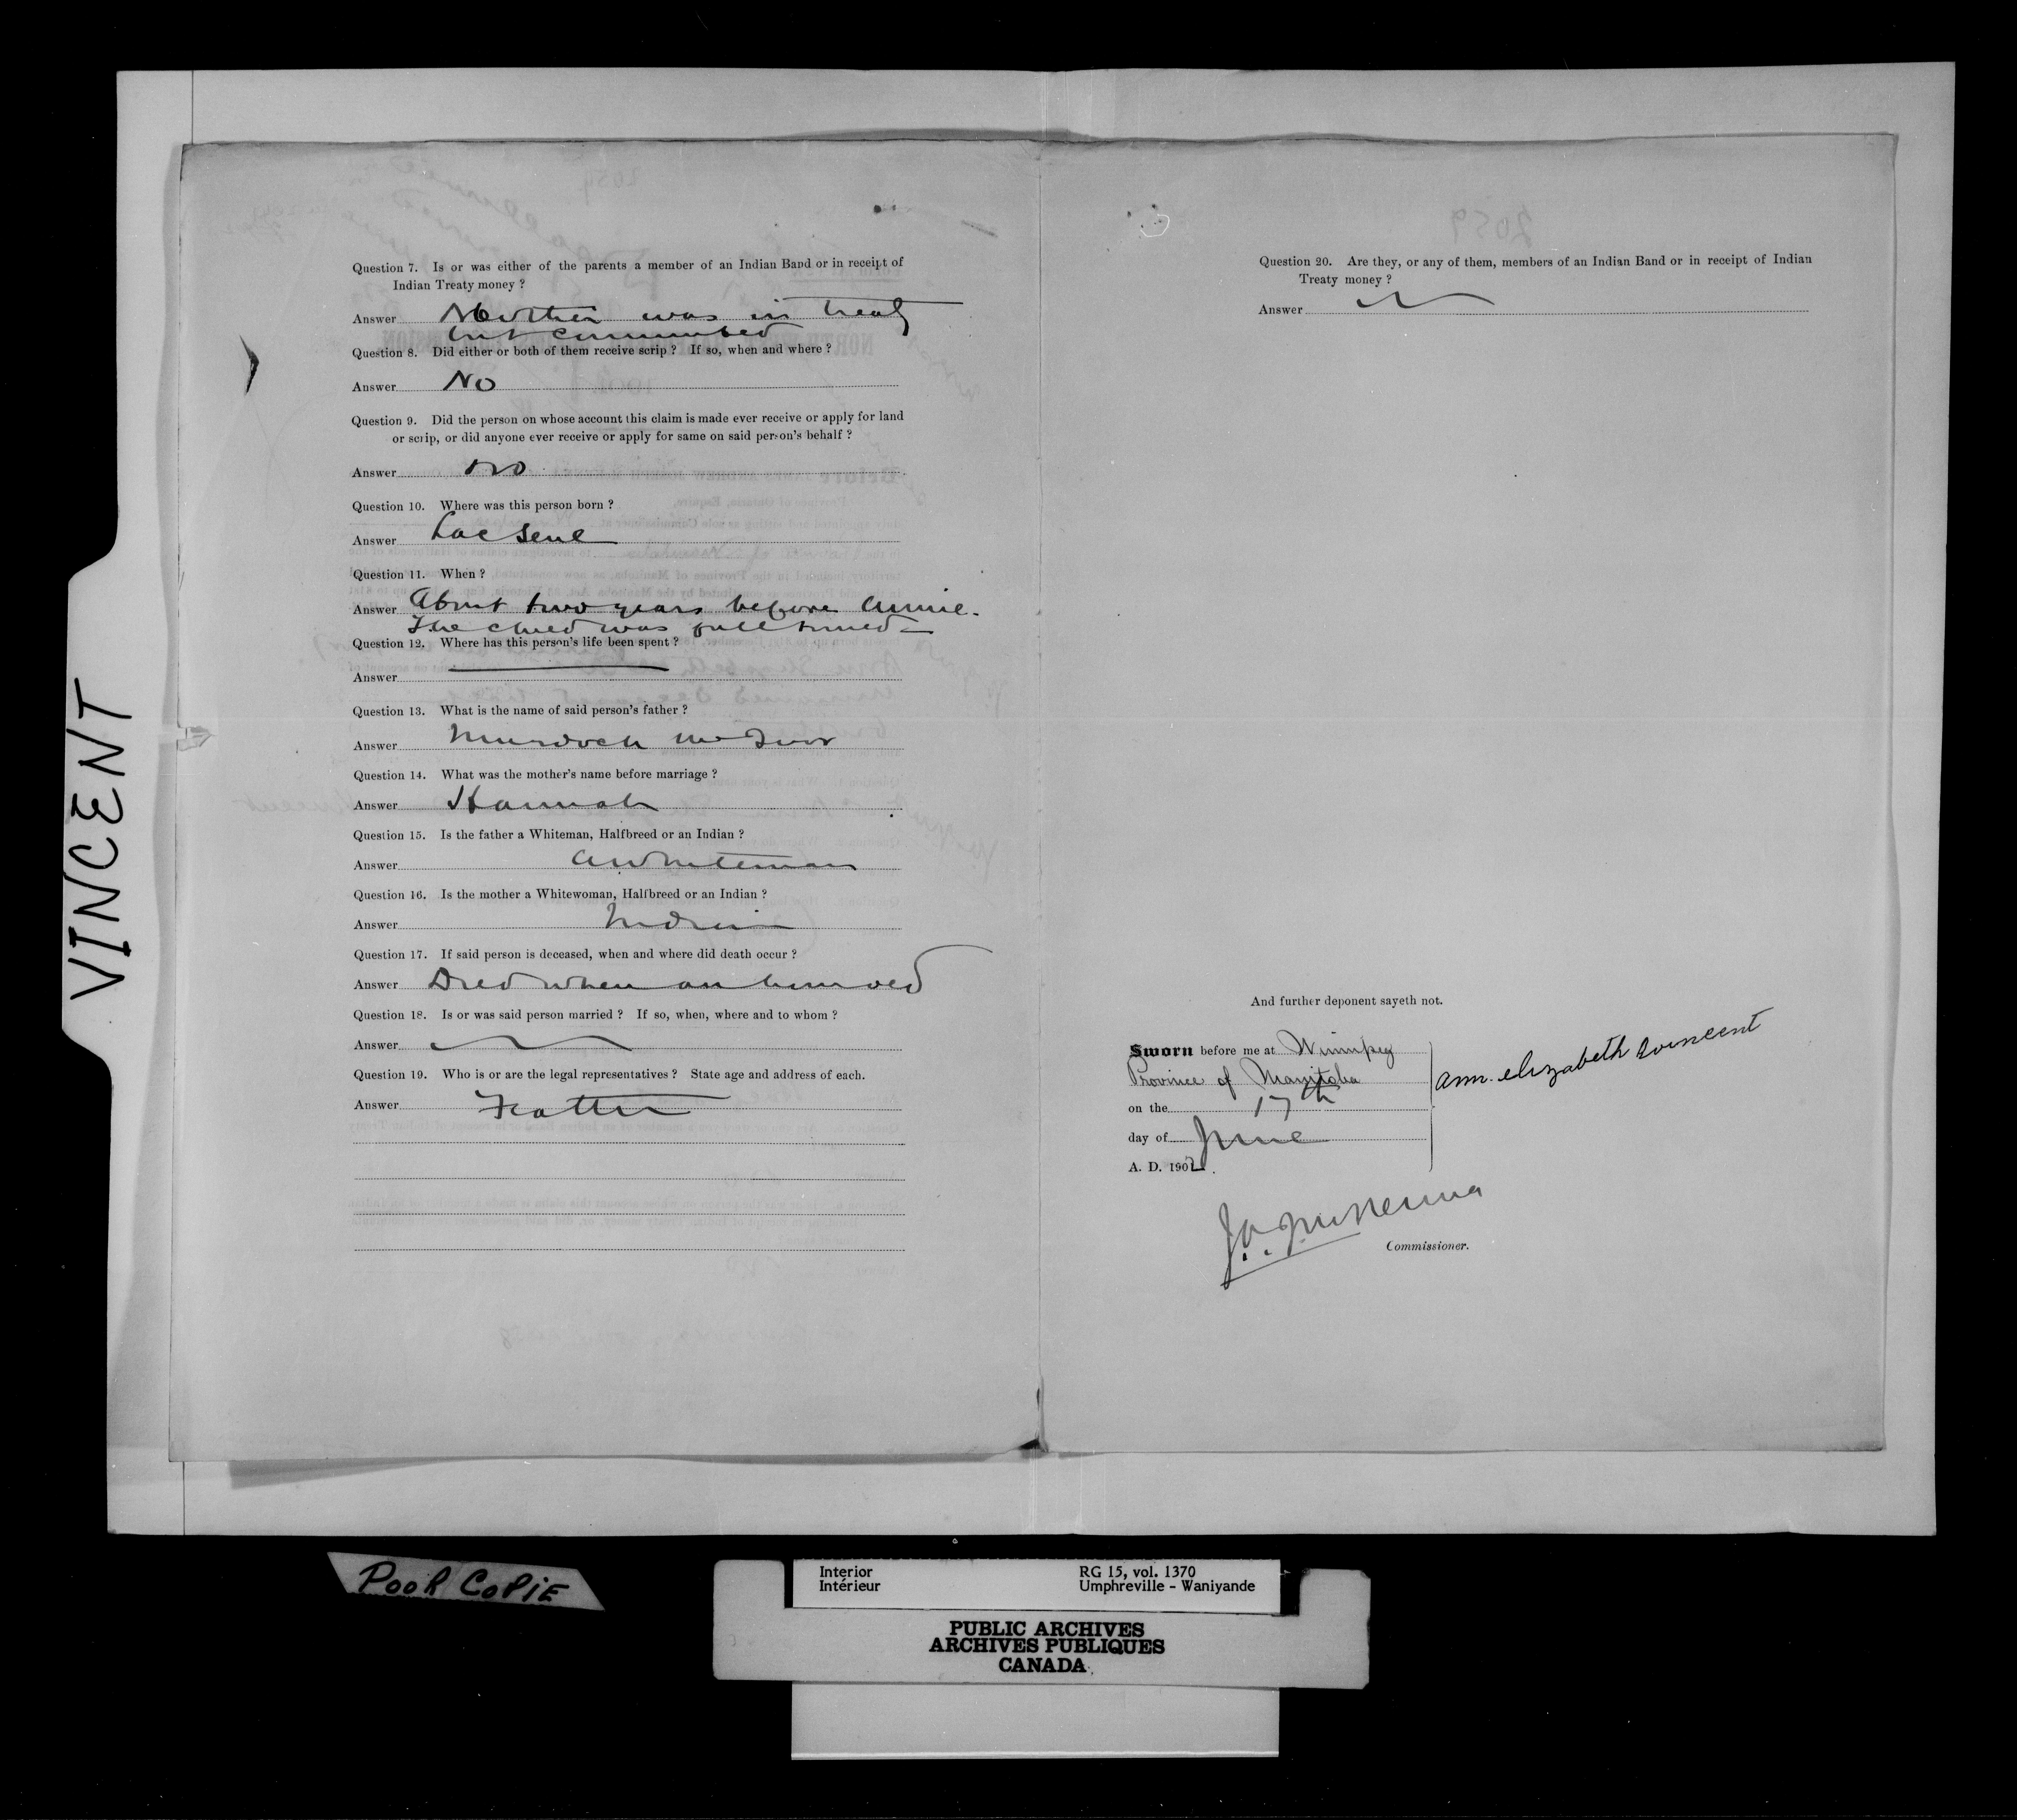 VINCENT
Question 7. Is or was either of the parents a member of an Indian Band or in receipt of
Indian Treaty money ?
Answer Mother was in treaty
but commuted
Question 8. Did either or both of them receive scrip ? If so, when and where ?
Answer No
Question 9. Did the person on whose account this claim is made ever receive or apply for land
or scrip, or did anyone ever receive or apply for same on said person's behalf ?
Answer no
Question 10. Where was this person born ?
Answer Lac Seul
Question 11. When ?
Answer About two years before Annie.
The child was full timed
Question 12. Where has this person's life been spent ?
Answer
Question 13. What is the name of said person's father ?
Answer Murdoch
Question 14. What was the mother's name before marriage ?
Answer Hannah
Question 15. Is the father a Whiteman, Halfbreed or an Indian ?
Answer a Whiteman
Question 16. Is the mother a Whitewoman, Halfbreed or an Indian ?
Answer Indian
Question 17. If said person is deceased, when and where did death occur ?
Answer Died when an hour old
Question 18. Is or was said person married ? If so, when, where and to whom ?
Answer
Question 19. Who is or are the legal representatives ? State age and address of each.
Answer Father
2059
Question 20. Are they, or any of them, members of an Indian Band or in receipt of Indian
Treaty money ?
Answer
And further deponent sayeth not.
Sworn before me at Winnipeg
Province of Manitoba
on the 17th
day of June
A. D. 1902.
ann elizabeth vincent
J.A.J. McKenna
Commissioner.
POOR COPIE
Interior
Intérieur
RG 15, vol. 1370
Umphreville - Waniyande
PUBLIC ARCHIVES
ARCHIVES PUBLIQUES
CANADA